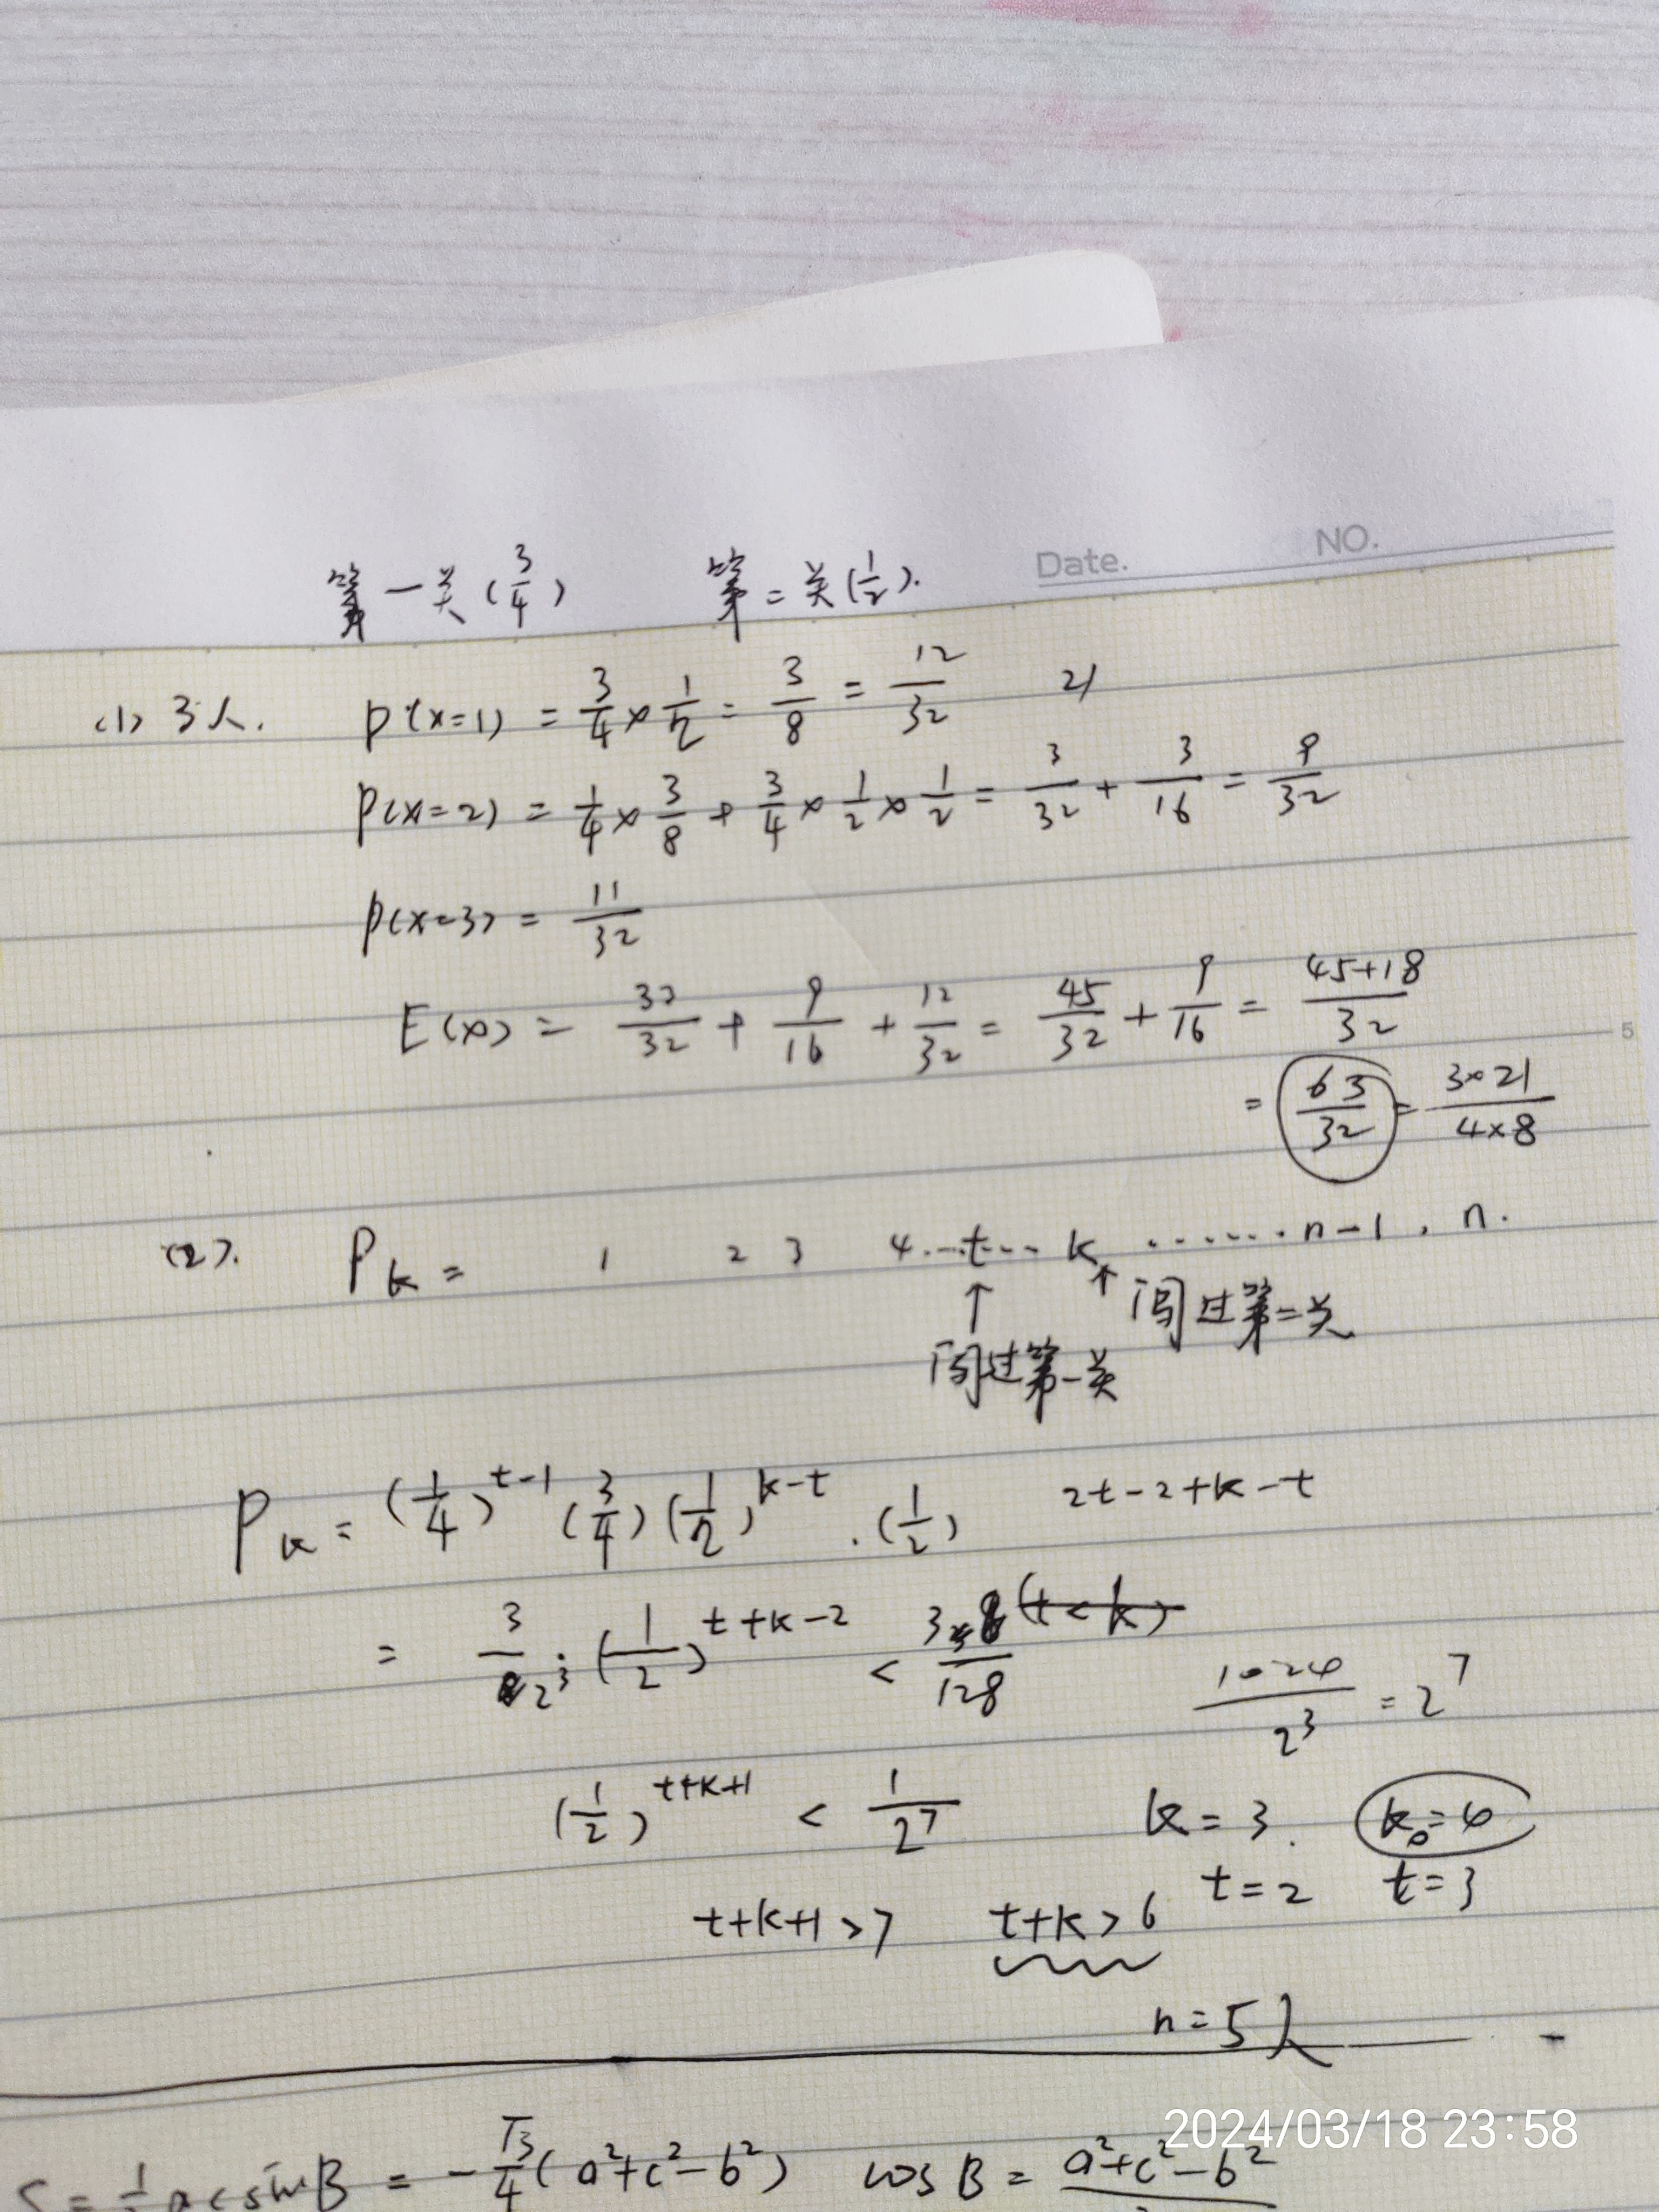 Date. NO.
第一关(3/4) 第二关(1/2).
(1) 3人. P(x=1) = 3/4 × 1/2 = 3/8 = 12/32 21
P(x=2) = 1/4 × 3/8 + 3/4 × 1/2 × 1/2 = 3/32 + 3/16 = 9/32
P(x=3) = 11/32
E(x) = 33/32 + 9/16 + 12/32 = 45/32 + 9/16 = 45+18/32
5
= 63/32 = 3×21/4×8
(2). P_k = 1 2 3 4...t... k ....... n-1 . n.
↑ ↑ 闯过第二关
闯过第一关
P_k = (1/4)^{t-1} (3/4) (1/2)^{k-t} . (1/2) 2t-2+k-t
= 3/2^3 · (1/2)^{t+k-2} < 3/128 (t<k)
1024/2^3 = 2^7
(1/2)^{t+k+1} < 1/2^7 k=3. k_0=4
t=2 t=3
t+k+1>7 t+k>6
n=5人
2024/03/18 23:58
S = 1/2 ac sin B = - √3/4 (a²+c²-b²) cos B = a²+c²-b²